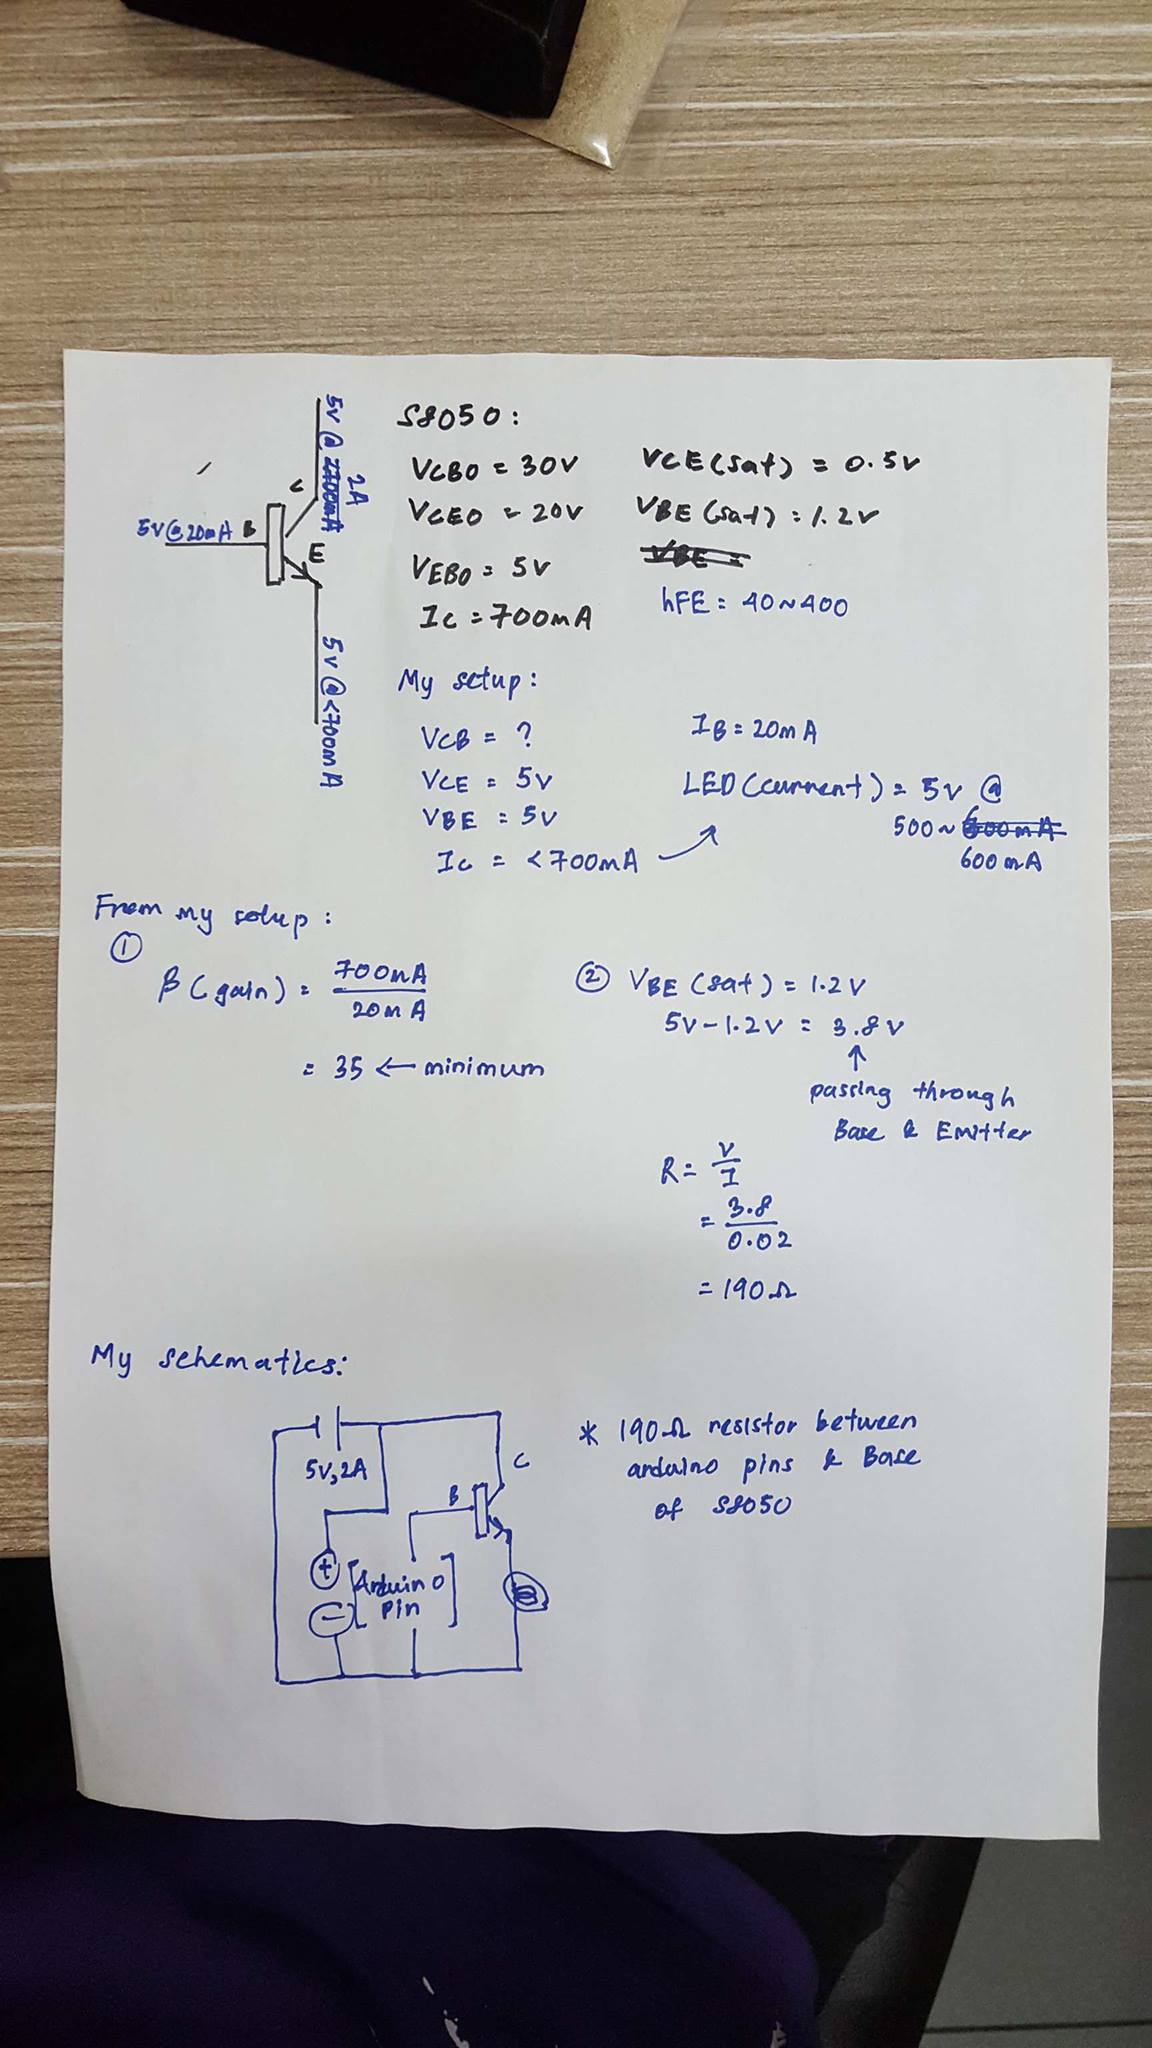 S8050:
VCBO = 30V
VCEO = 20V
VEBO = 5V
Ic = 700mA
VCE(sat) = 0.5V
VBE(sat) = 1.2V
VBE =
hFE = 40~400
5V @ 2700mA
2A
C
5V @ 20mA B
E
5V @ <700mA
My setup:
VCB = ?
VCE = 5V
VBE = 5V
Ic = <700mA
IB = 20mA
LED (current) = 5V @
500~600mA
600mA
From my setup:
①
β (gain) = 700mA
20mA
= 35 ← minimum
② VBE (sat) = 1.2V
5V - 1.2V = 3.8V
↑
passing through
Base & Emitter
R = V
I
= 3.8
0.02
= 190Ω
My schematics:
5V, 2A
C
B
+
Arduino
Pin
-
* 190Ω resistor between
arduino pins & Base
of S8050